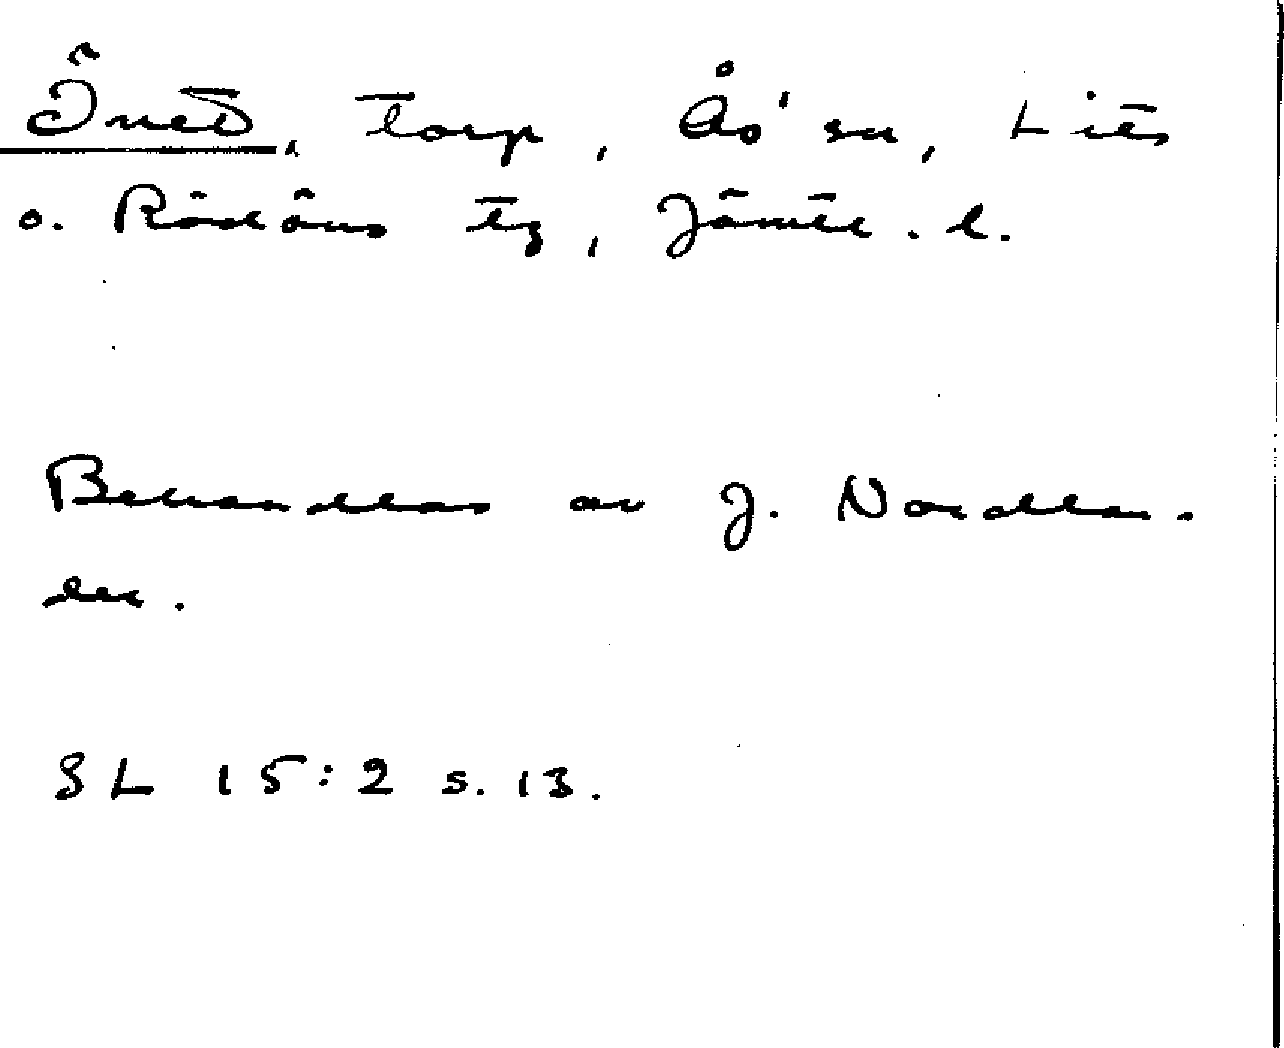 Önet, torp, Ås' sn, Lits
o. Rödöns tg, Jämtl. l.
Behandlas av J. Nordlan-
der.
SL 15:2 s. 13.